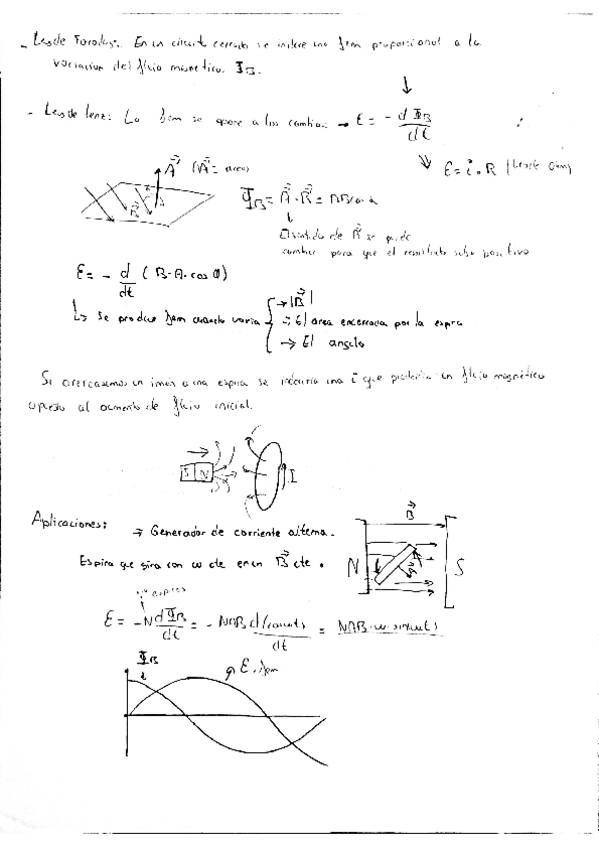 - Ley de Faraday: En un circuito cerrado se induce una fem proporcional a la
variacion del flujo magnetico. ΦB.
- Ley de lenz: La fem se opone a los cambios. → ε = - dΦB/dt
ε = i · R | Ley de Ohm
A (|A| = area)
B
ΦB = A · B = AB cos α
El sentido de B se puede
cambiar para que el resultado salga positivo
ε = - d/dt (B · A · cos θ)
↳ Se produce fem cuando varia → |B|
→ El area encerrada por la espira
→ El angulo
Si acercasemos un iman a una espira se induciria una i que produciria un flujo magnetico
opuesto al aumento de flujo inicial.
S N
I
Aplicaciones: → Generador de corriente alterna.
B
Espira que gira con ω cte en un B cte.
N S
Nº espiras
ε = -N dΦB/dt = - NAB d(cos ωt)/dt = NAB · ω · sin(ωt)
ΦB
ε, fem